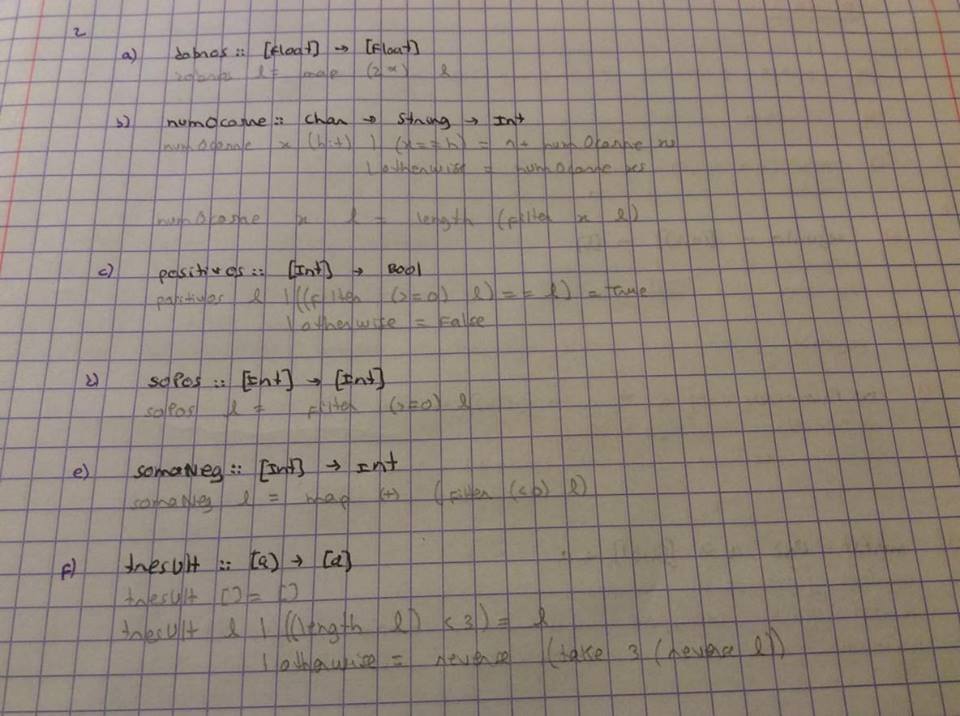 2
a) dobros :: [Float] → [Float]
dobros l = map (2*) l
b) numOcorre :: Char → String → Int
numOcorre x (h:t) | (x==h) = 1+ numOcorre xs
| otherwise = numOcorre xs
numOcorre x l = length (filter x l)
c) positivos :: [Int] → Bool
positivos l | ((filter (>=0) l) == l) = True
| otherwise = False
d) soPos :: [Int] → [Int]
soPos l = filter (>=0) l
e) somaNeg :: [Int] → Int
somaNeg l = map (+) (filter (<0) l)
f) tresUlt :: [a] → [a]
tresUlt [] = []
tresUlt l | ((length l) <3) = l
| otherwise = reverse (take 3 (reverse l))